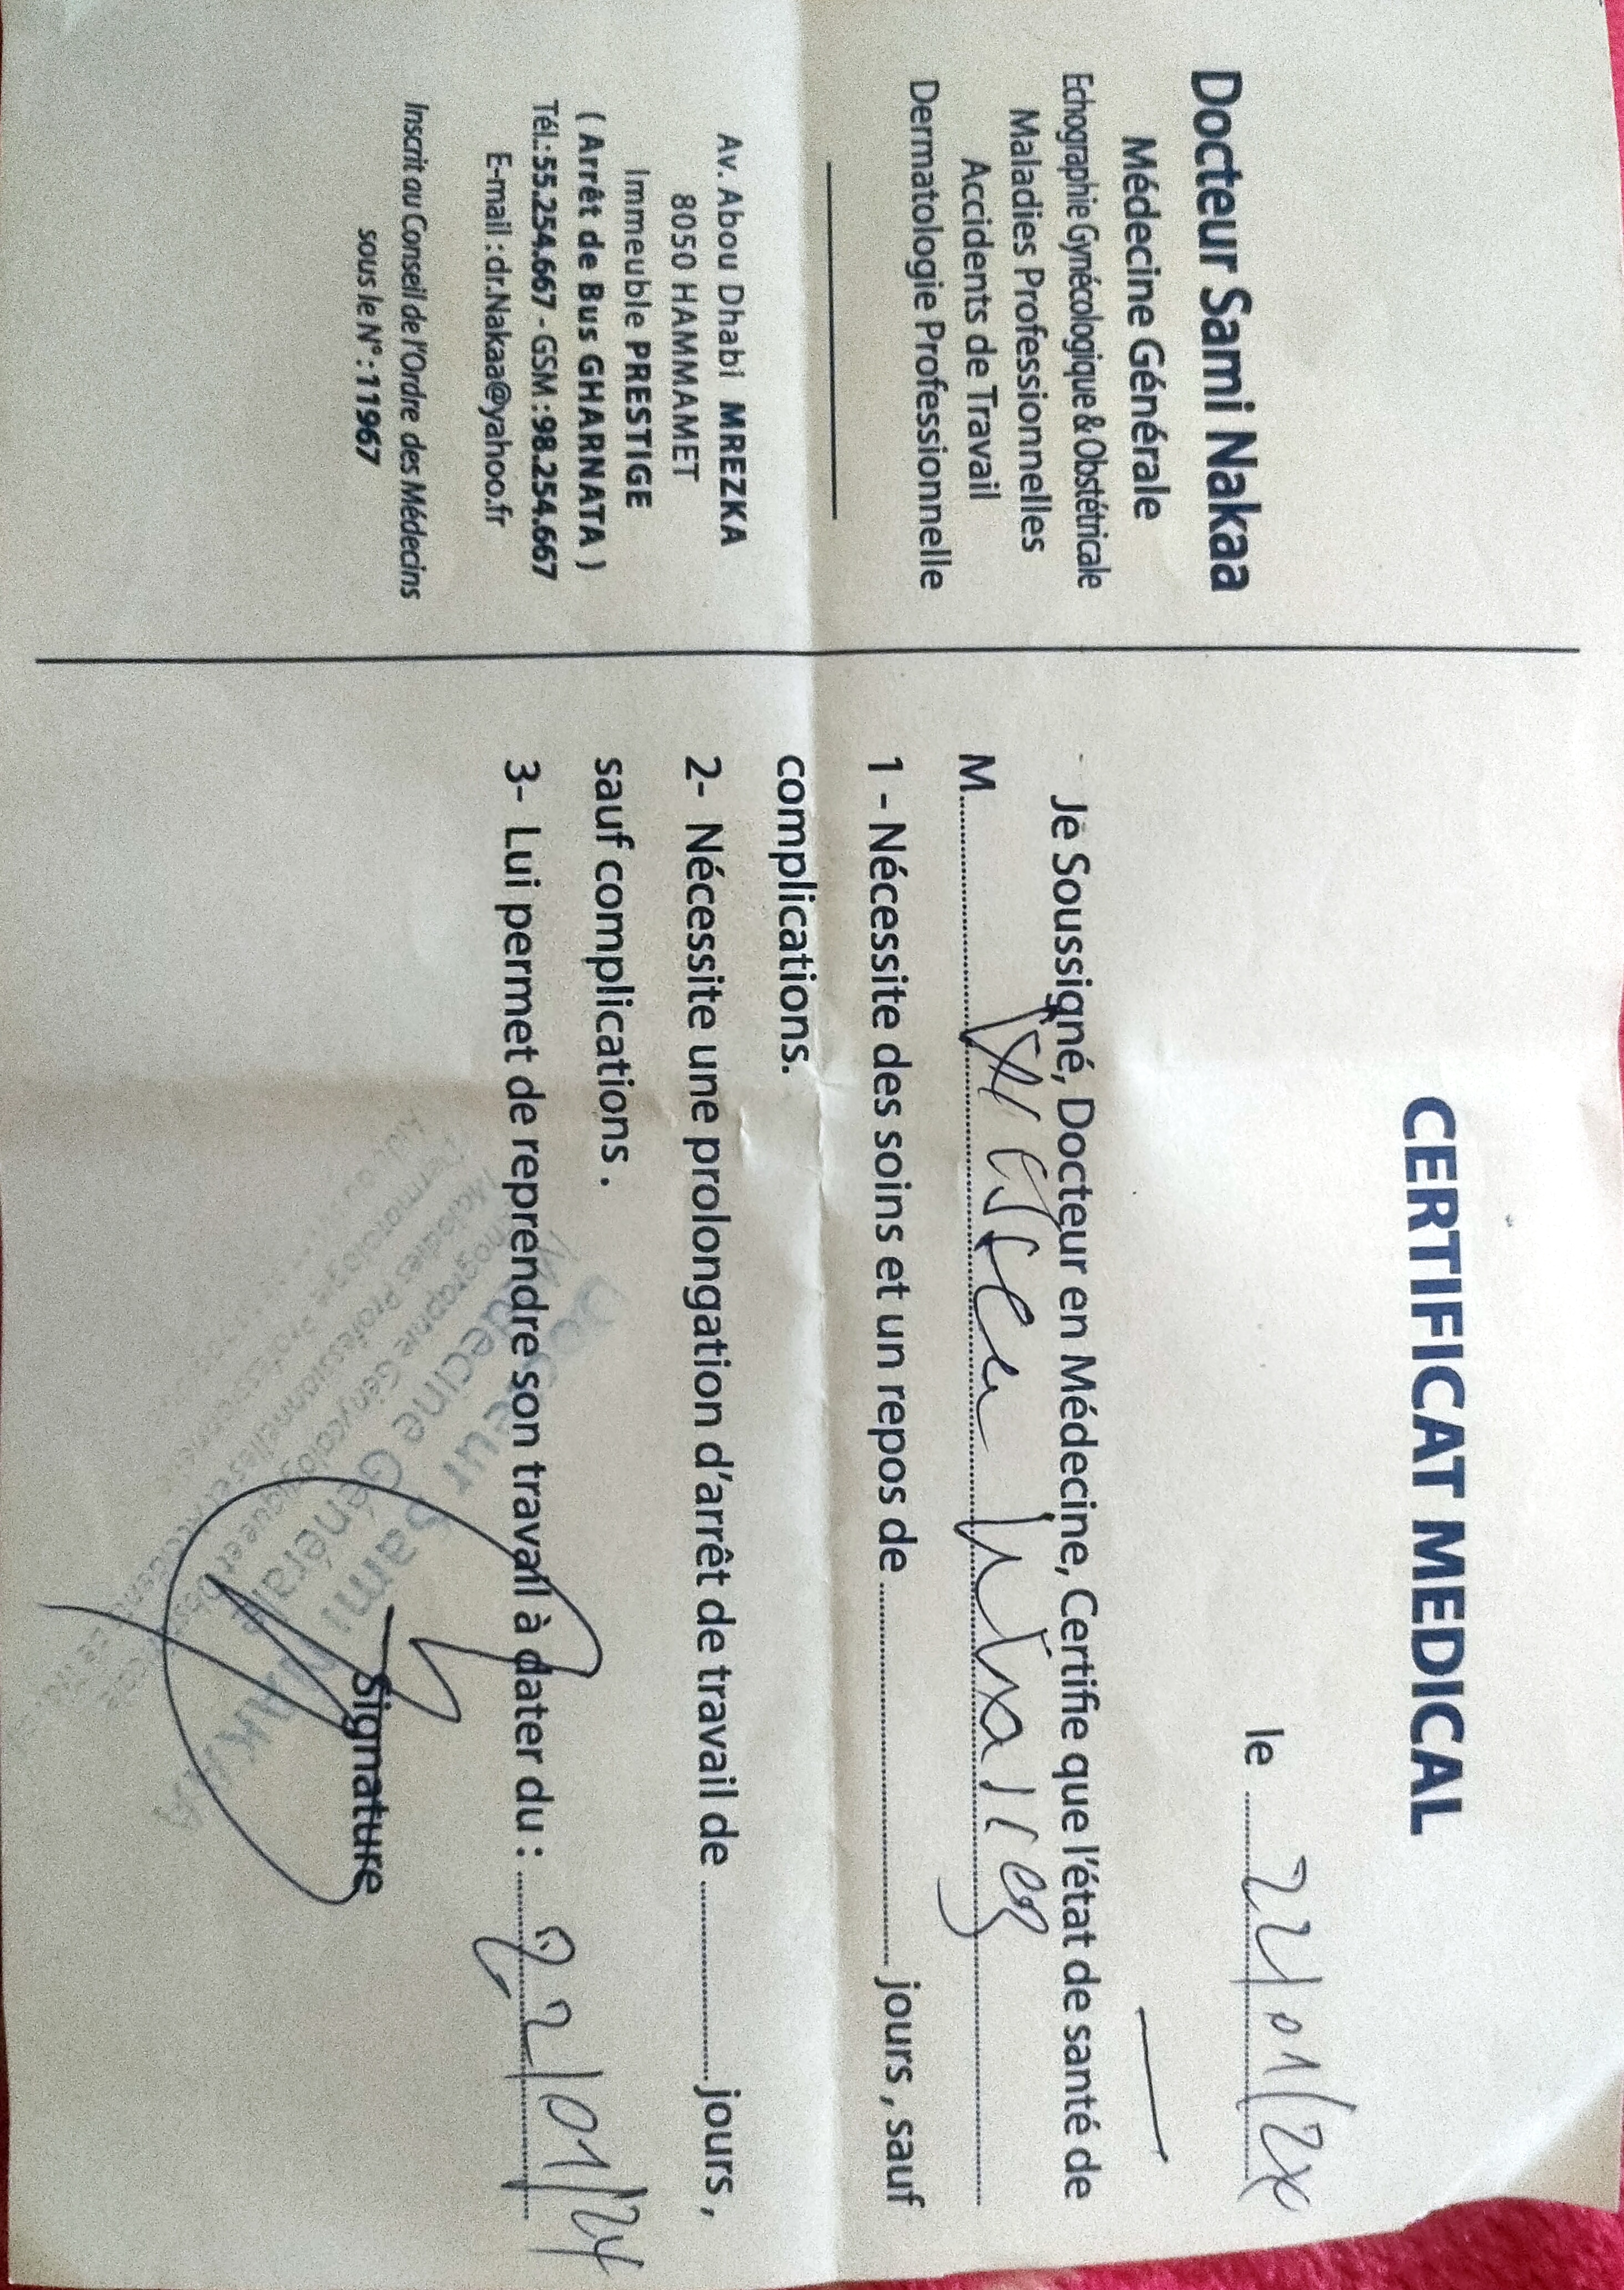 Docteur Sami Nakaa
Médecine Générale
Echographie Gynécologique & Obstétricale
Maladies Professionnelles
Accidents de Travail
Dermatologie Professionnelle
Av. Abou Dhabi MREZKA
8050 HAMMAMET
Immeuble PRESTIGE
( Arrêt de Bus GHARNATA )
Tél.: 55.254.667 - GSM : 98.254.667
E-mail : dr.Nakaa@yahoo.fr
Inscrit au Conseil de l'Ordre des Médecins
sous le N° : 11967
CERTIFICAT MEDICAL
le 22/01/24
Je Soussigné, Docteur en Médecine, Certifie que l'état de santé de
M.
1 - Nécessite des soins et un repos de jours , sauf
complications.
2- Nécessite une prolongation d'arrêt de travail de jours ,
sauf complications .
3- Lui permet de reprendre son travail à dater du : 22/01/24
Signature
Docteur Sami NAKAA
Médecine Générale